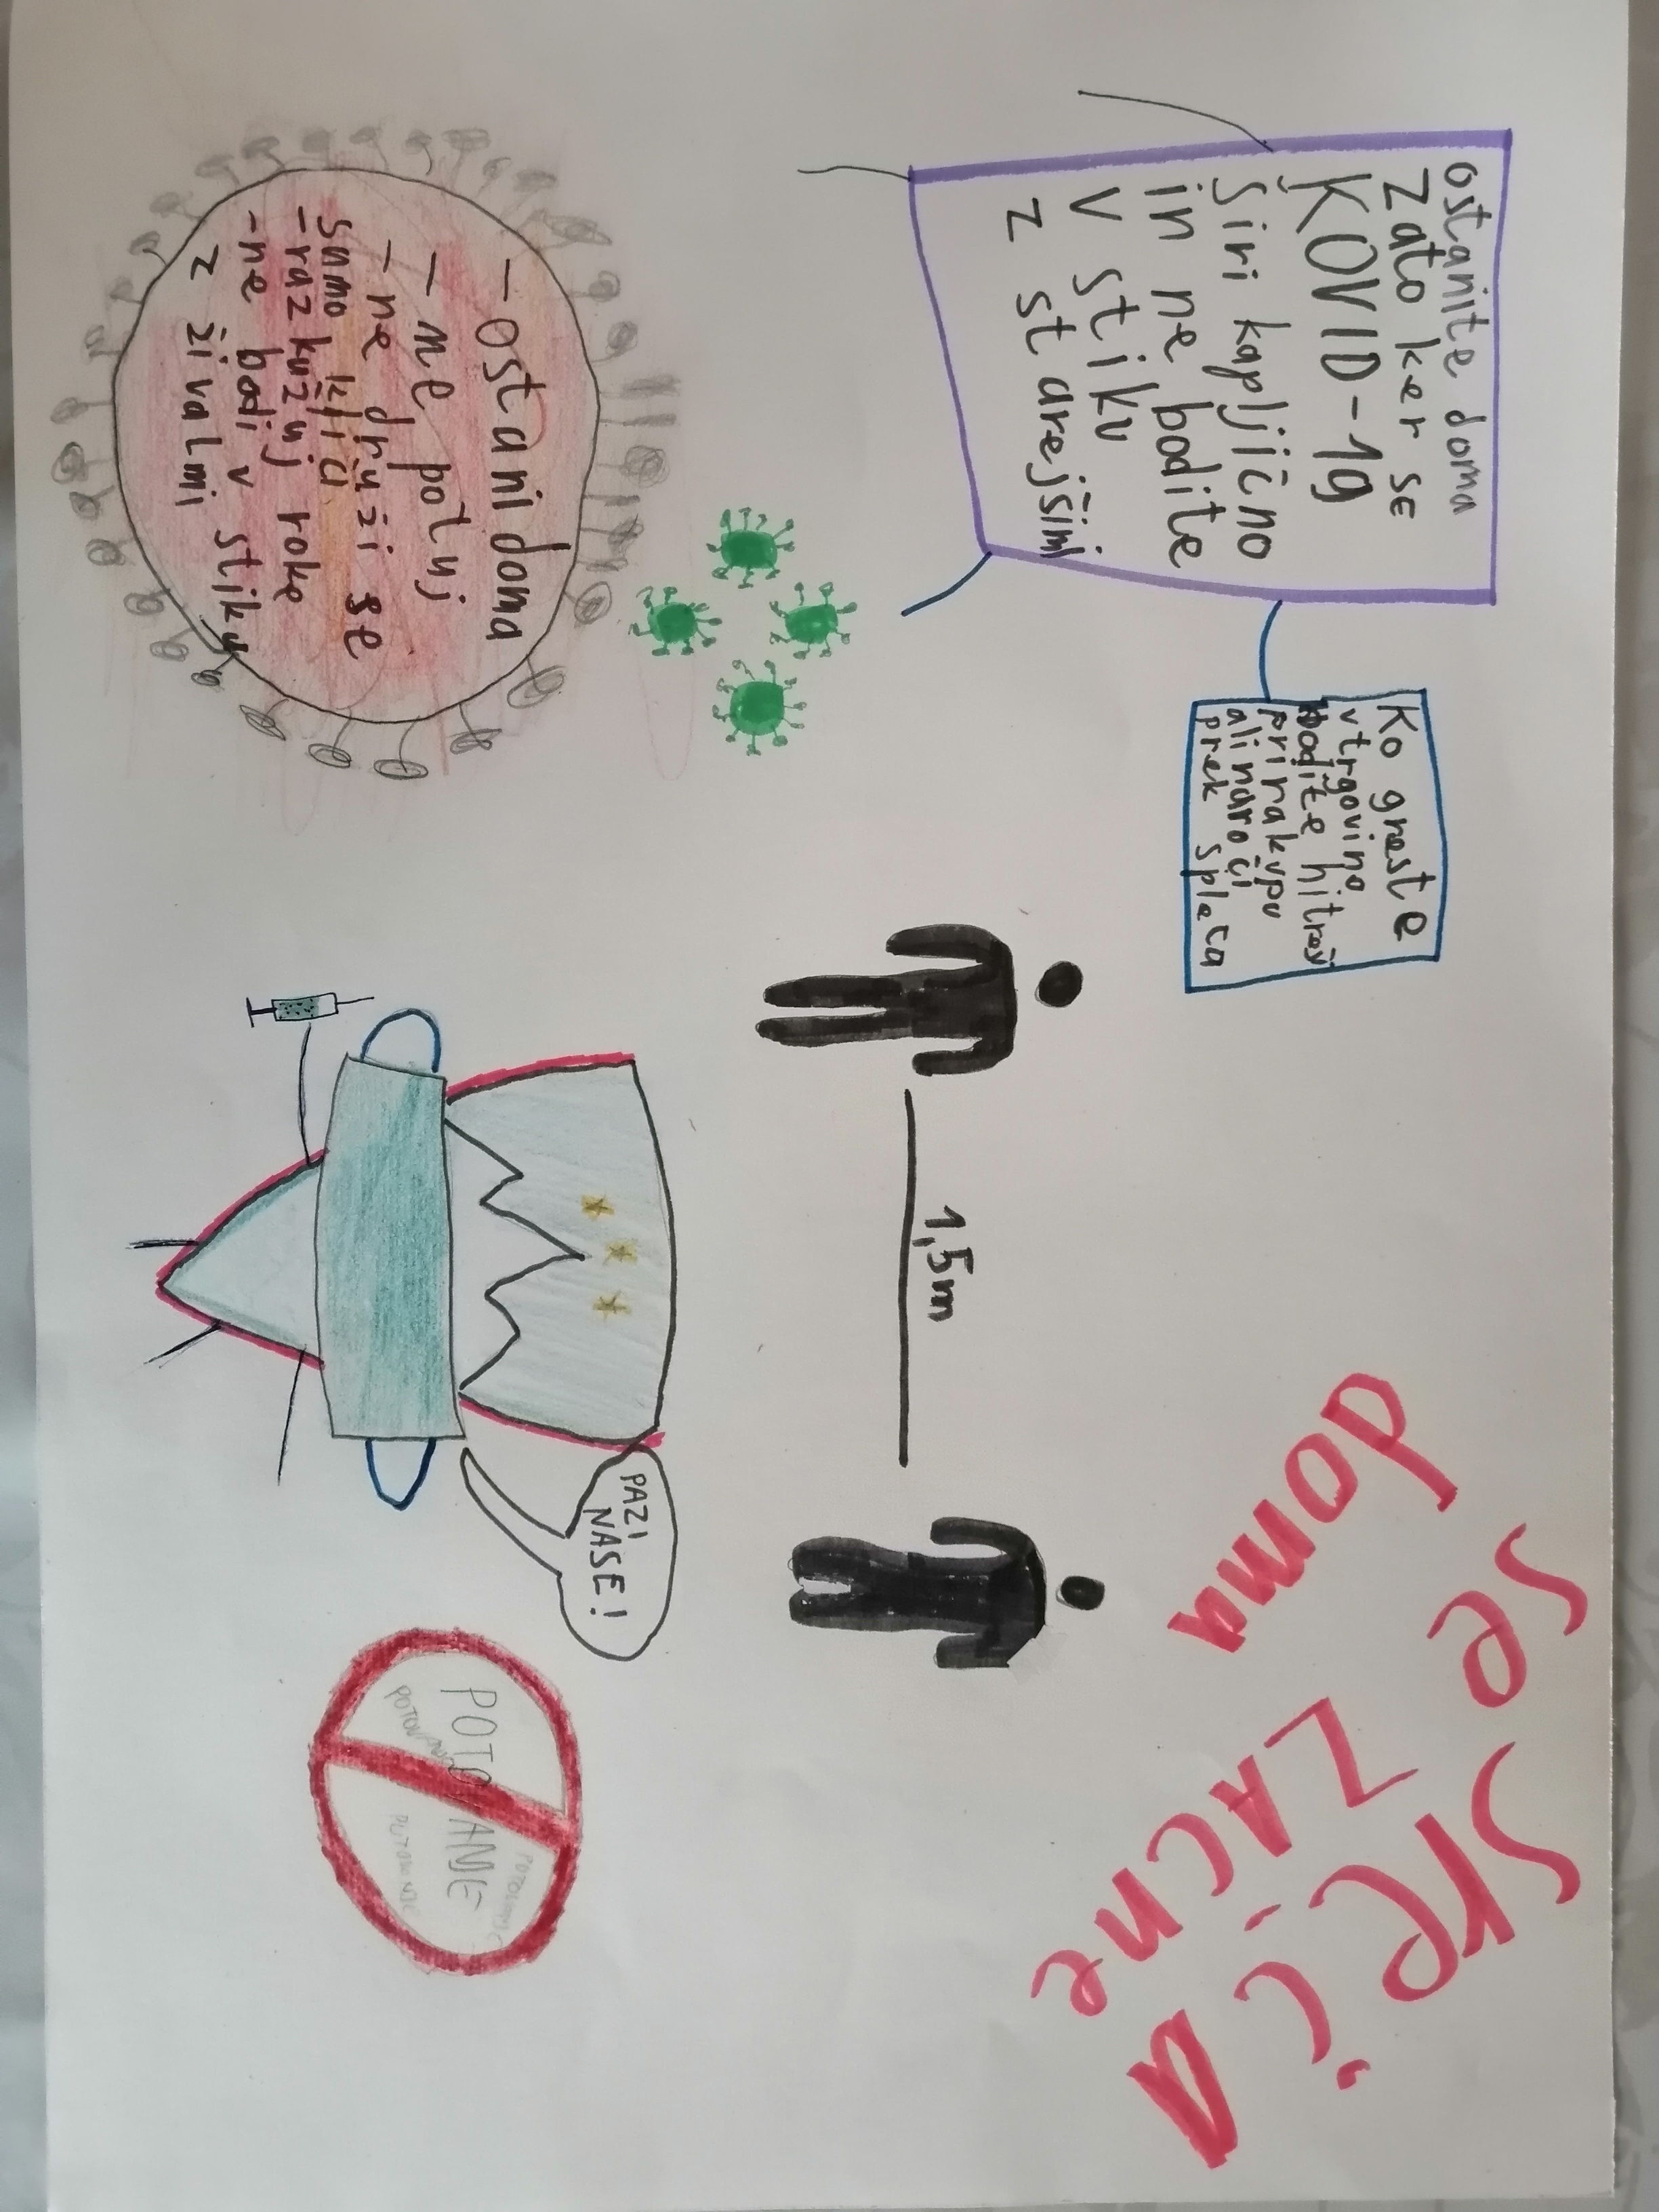 ostanite doma
zato ker se
KOVID-19
širi kapljično
in ne bodite
v stiku
z starejšimi
Ko greste
v trgovino
bodite hitrejši
pri nakupu
ali naroči
prek spleta
SREČA
se ZAČNE
doma
1,5m
- ostani doma
- ne potuj
- ne druži se
samo kliči
- razkužuj roke
- ne bodi v stiku
z živalmi
PAZI
NASE!
POTOVANJE
POTOVANJE
POTOVANJE
POTOVANJE